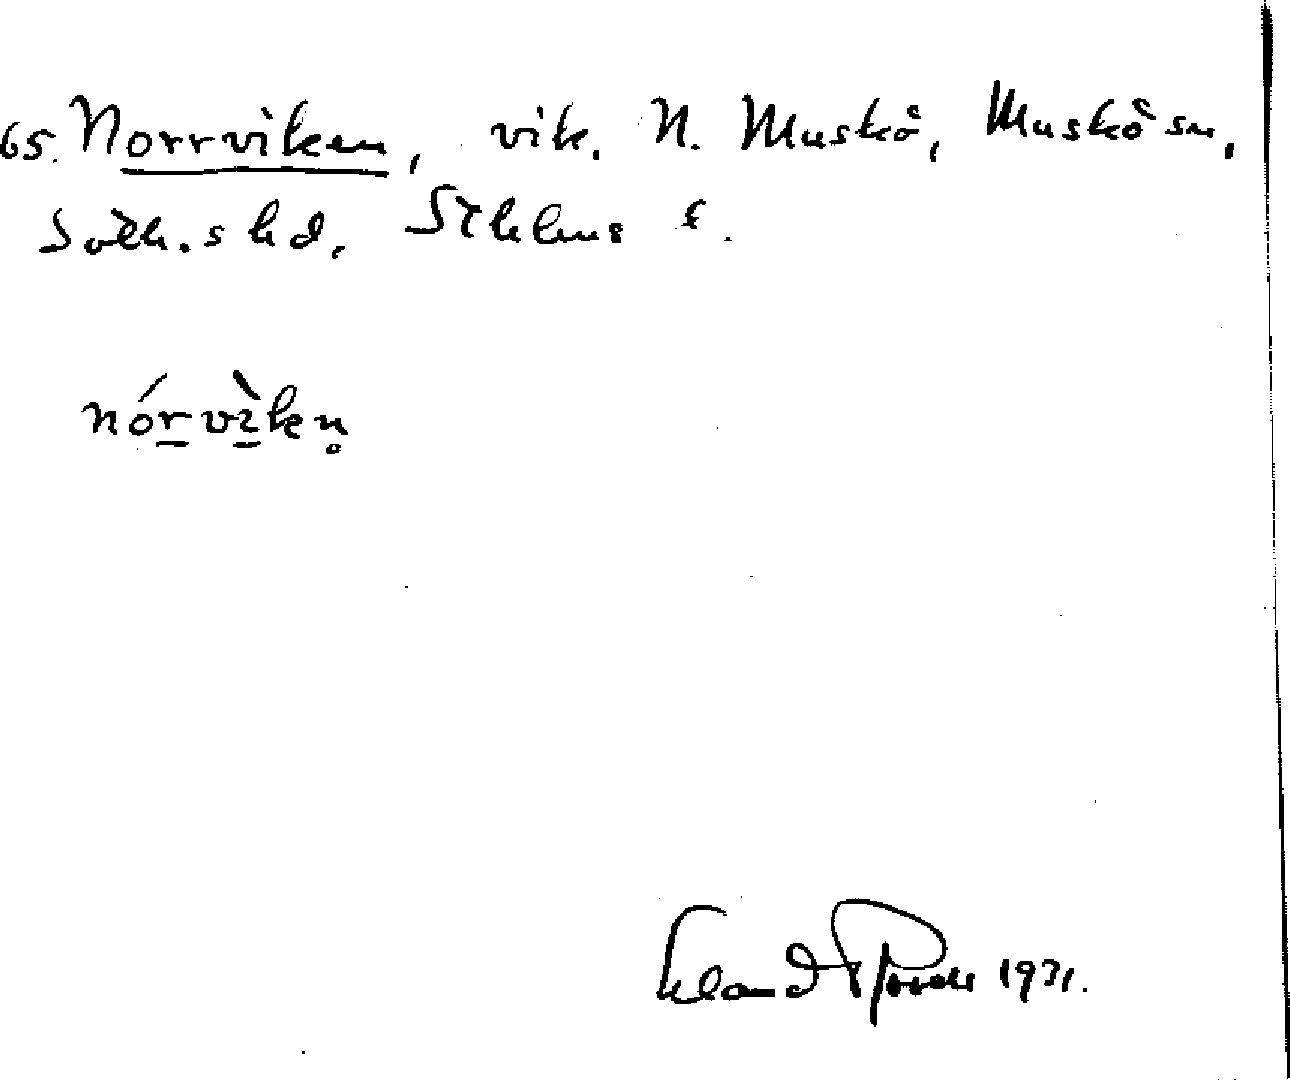 65. Norrviken, vik. N. Muskö, Muskö sn,
Soth.s hd, Sthlms l.
nórvìkn̥
1931.